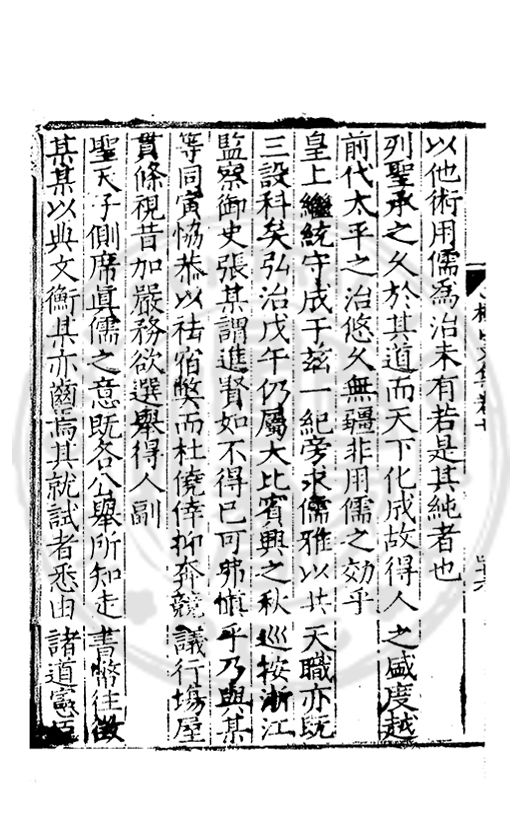 以他術用儒爲治未有若是其純者也
列聖承之久於其道而天下化成故得人之盛度越
前代太平之治悠久無疆非用儒之効乎
皇上繼統守成于玆一紀旁求儒雅以共天職亦既
三設科矣弘治戊午仍屬大比賓興之秋巡按浙江
監察御史張某謂進賢如不得已可弗慎乎乃與某
等同寅協恭以祛宿弊而杜僥倖抑奔競議行塲屋
貫條視昔加嚴務欲選舉得人副
聖天子側席眞儒之意既各公舉所知走書幣往徵
某某以典文衡某亦齒焉其就試者悉由諸道憲臣